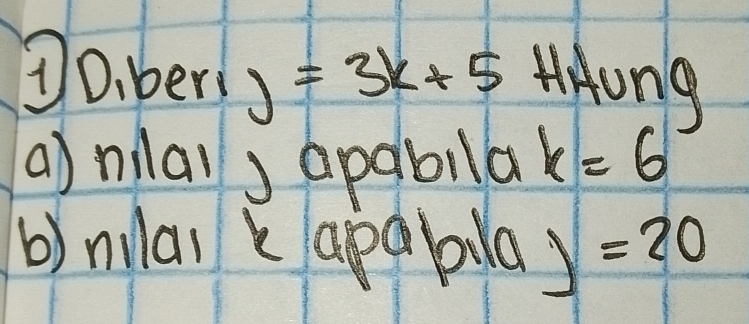 1) Diberi j = 3k + 5 Hitung
a) nilai j apabila k = 6
b) nilai k apabila j = 20